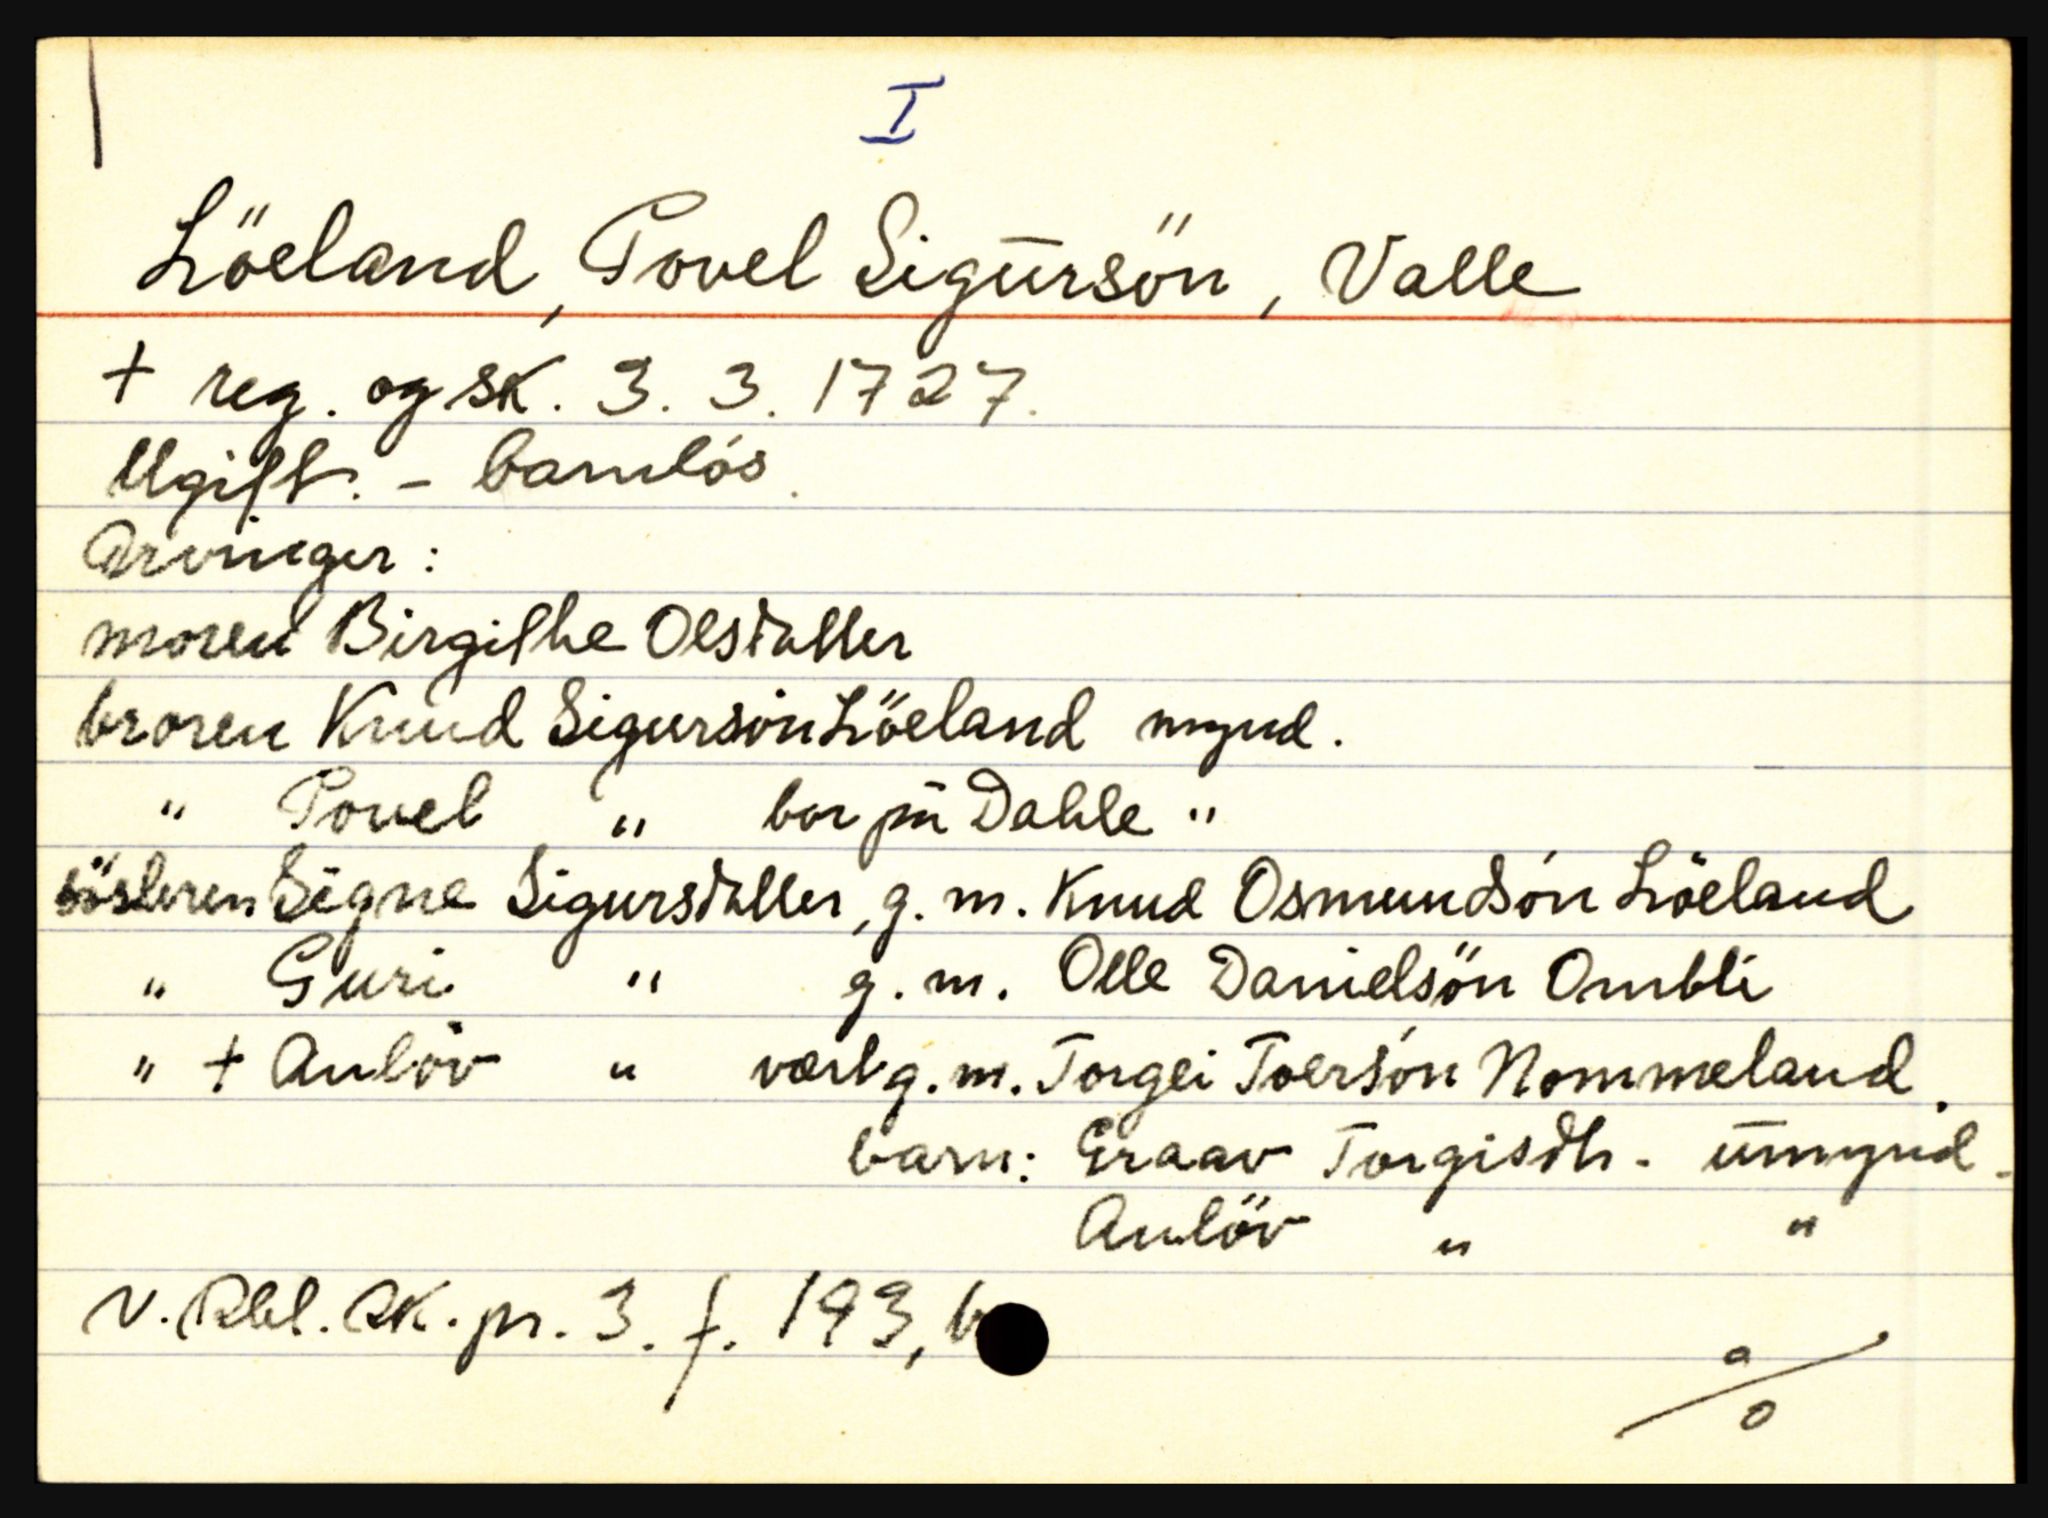 I
Löeland, Povel Sigursön, Valle
+ reg. og sk. 3. 3. 1727.
Ugift. - barnlös.
Arvinger:
moren Birgithe Olsdatter
broren Knud Sigursön Löeland mynd.
" Povel " bor på Dahle "
sösteren Signe Sigursdatter, g. m. Knud Osmundsön Löeland
" Guri " g. m. Olle Danielsön Ombli
" + Anlöv " vært g. m. Torgei Toersön Nommeland.
barn: Eraav Torgisdtr. umynd.
Anlöv " "
V. Rbl. Sk. pr. 3. f. 193, b
a/o